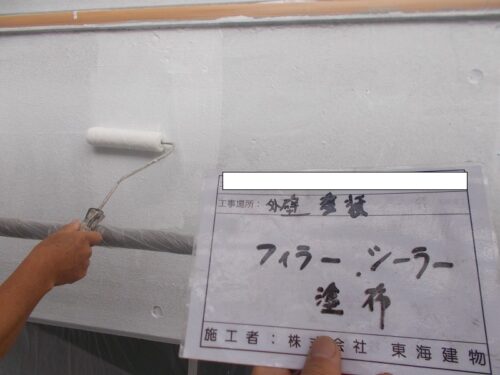 工事場所：外壁塗装
フィラー．シーラー
塗布
施工者：株式会社 東海建物